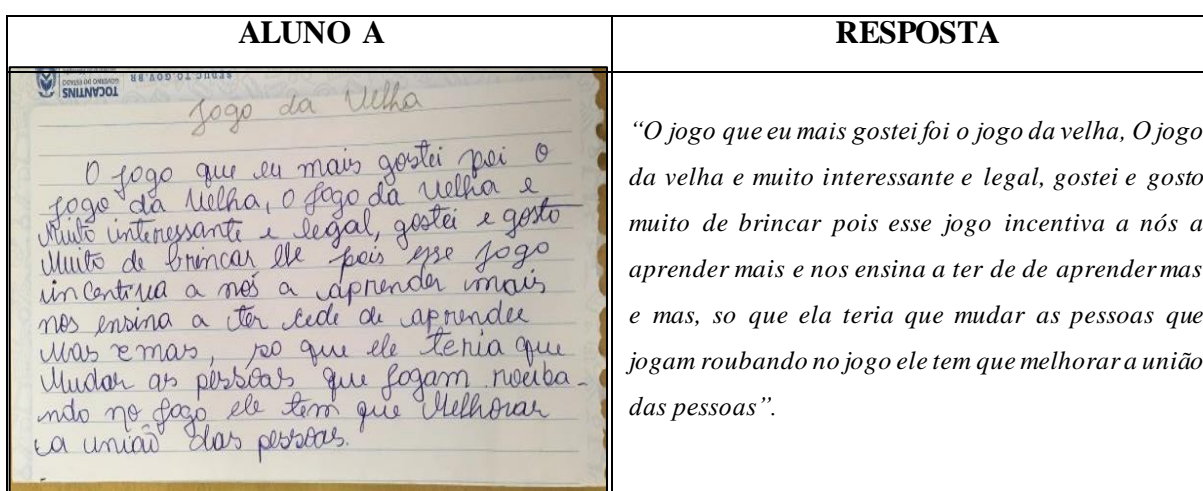 ALUNO A
RESPOSTA
TOCANTINS
GOVERNO DO ESTADO
SEDUC.TO.GOV.BR
Jogo da Velha
O jogo que eu mais gostei foi o
jogo da velha, o jogo da velha e
Muito interessante e legal, gostei e gosto
Muito de brincar ele pois esse jogo
incentiva a nós a aprender mais
nos ensina a ter cede de aprender
Mas e mas, so que ele teria que
Mudar as pessoas que jogam rouba-
ndo no jogo ele tem que Melhorar
a união das pessoas.
“O jogo que eu mais gostei foi o jogo da velha, O jogo
da velha e muito interessante e legal, gostei e gosto
muito de brincar pois esse jogo incentiva a nós a
aprender mais e nos ensina a ter de de aprender mas
e mas, so que ela teria que mudar as pessoas que
jogam roubando no jogo ele tem que melhorar a união
das pessoas”.